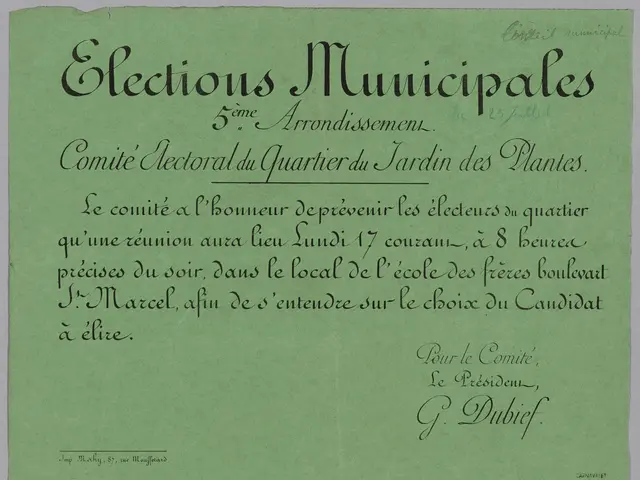 Conseil municipal
Elections Municipales
5ème Arrondissement.
Comité Electoral du Quartier du Jardin des Plantes.
Le comité a l'honneur de prévenir les électeurs du quartier
qu'une réunion aura lieu Lundi 17 courant, à 8 heures
précises du soir, dans le local de l'école des frères boulevart
St. Marcel, afin de s'entendre sur le choix du Candidat
à élire.
Pour le Comité.
Le Président,
G. Dubief.
Imp. Mahy, 87, rue Mouffetard